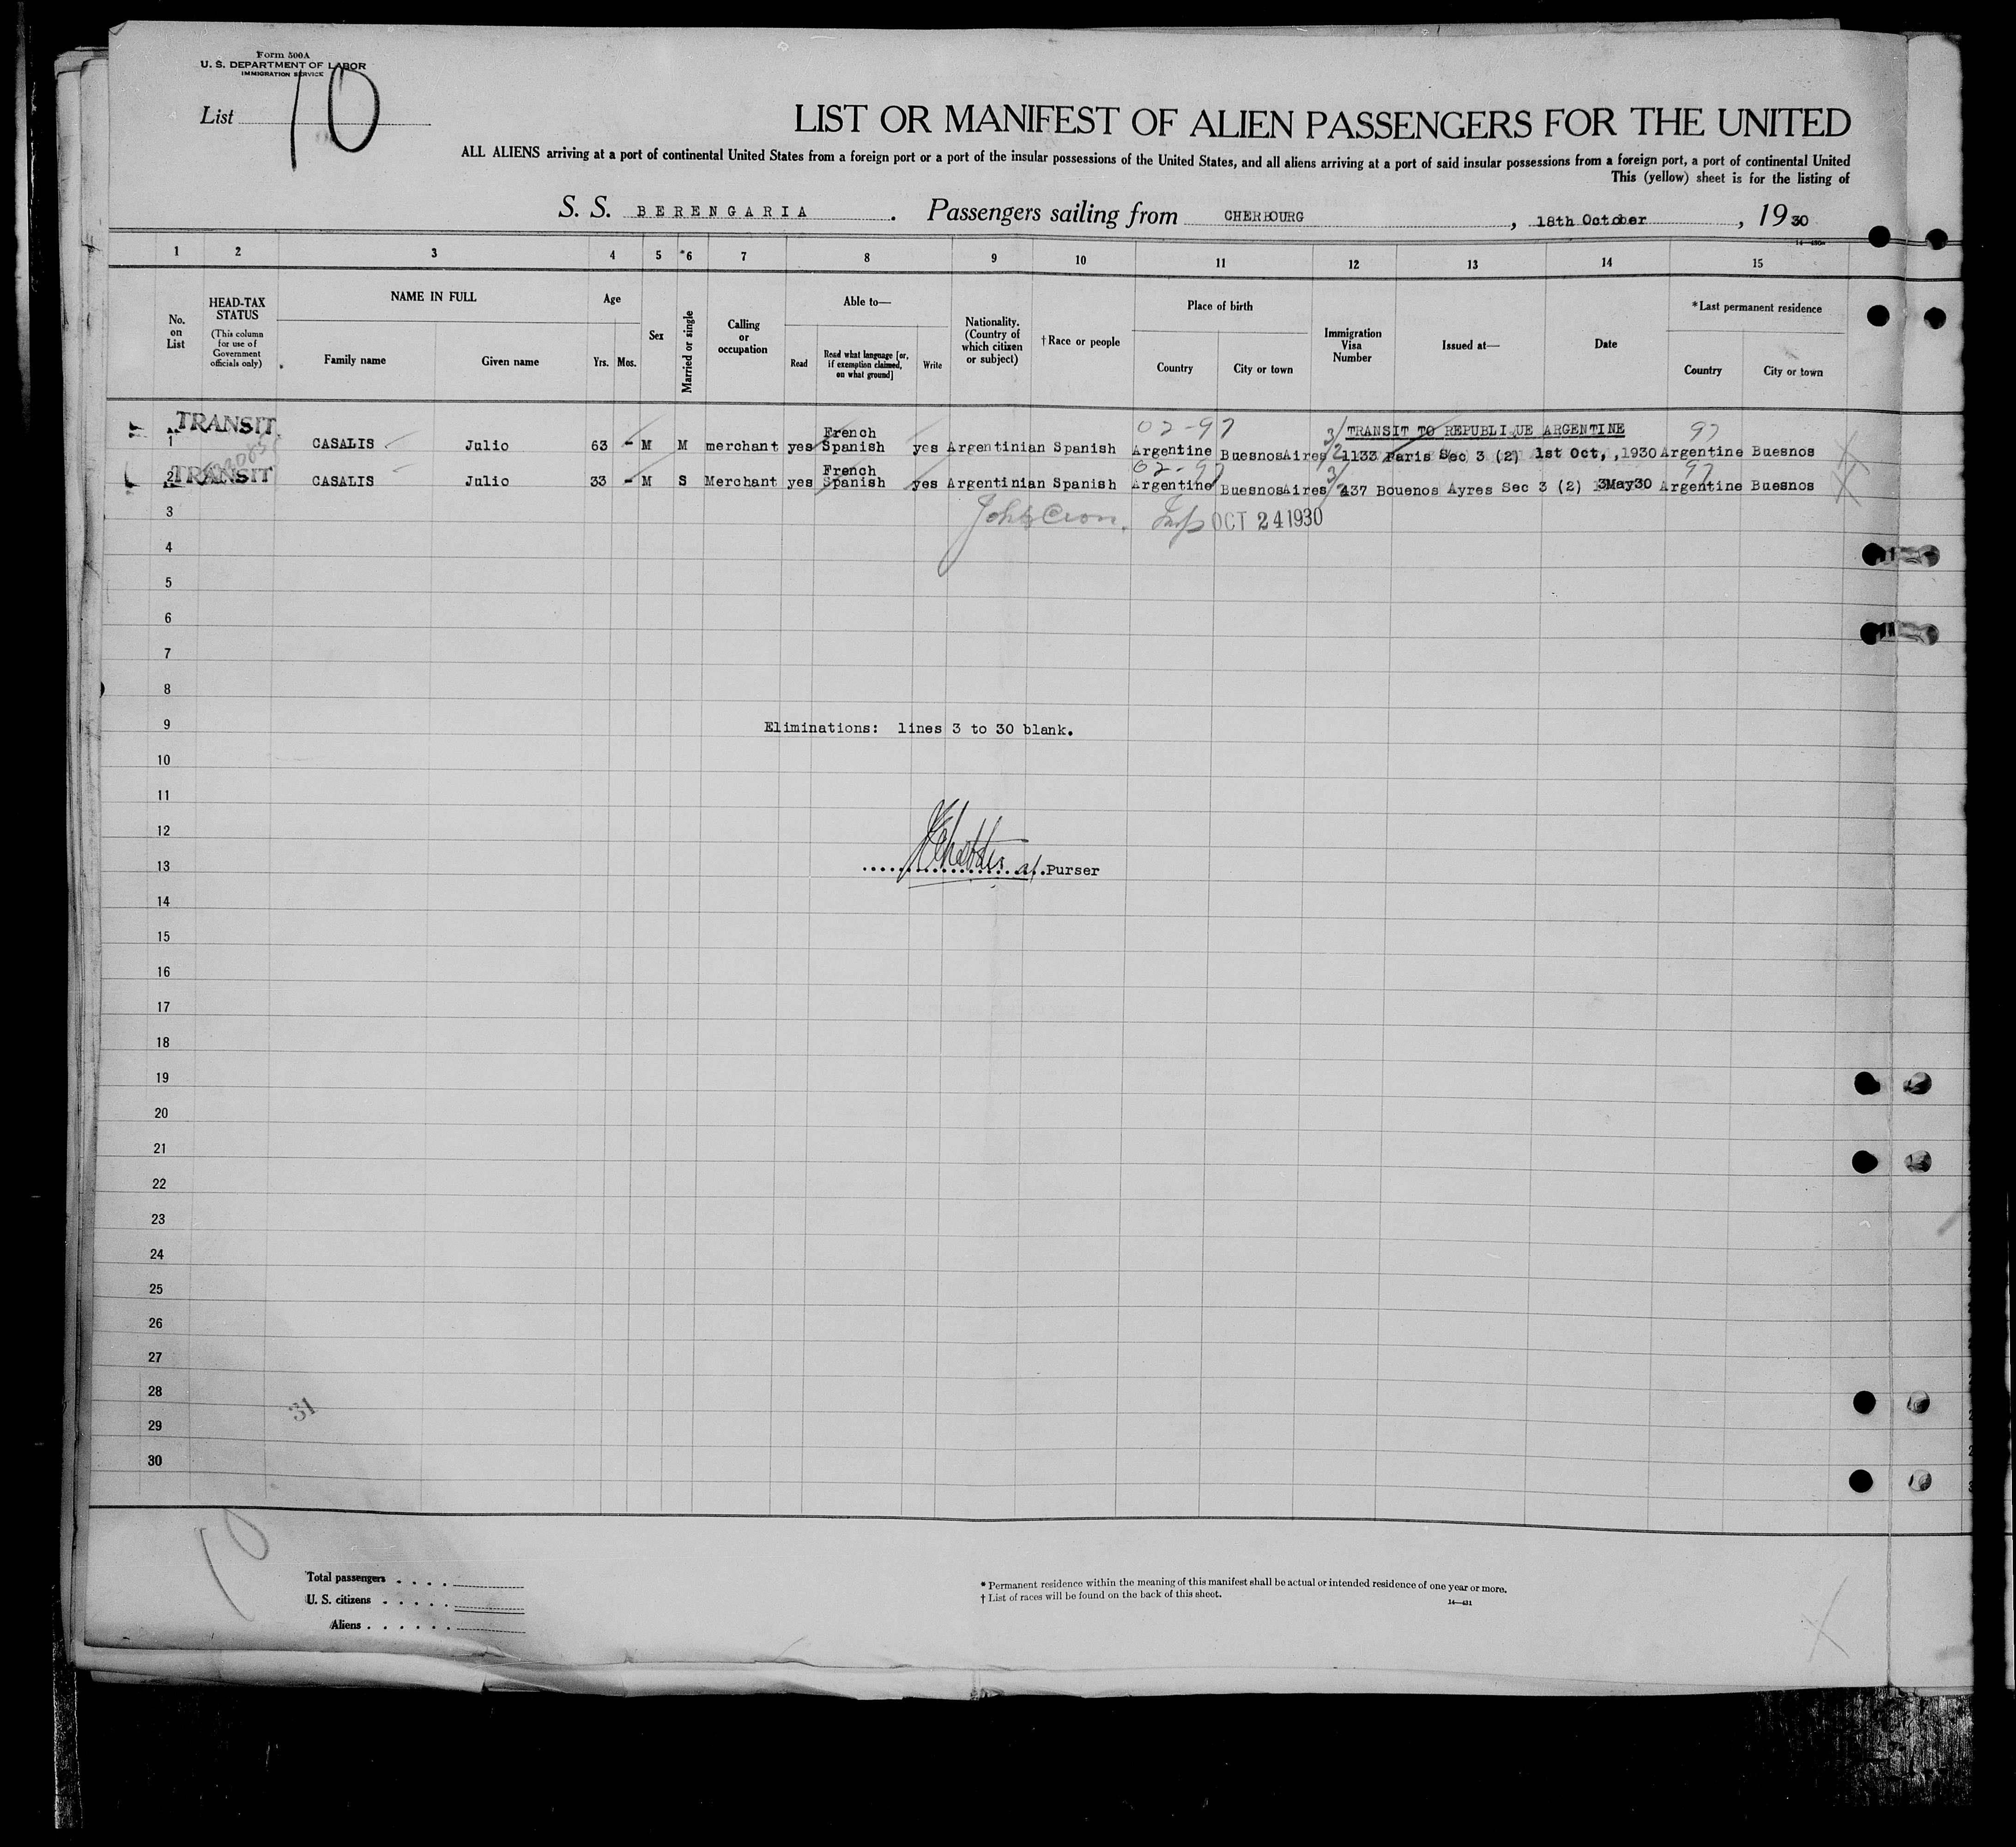 Form 500A
U. S. DEPARTMENT OF LABOR
IMMIGRATION SERVICE
List 10
LIST OR MANIFEST OF ALIEN PASSENGERS FOR THE UNITED
ALL ALIENS arriving at a port of continental United States from a foreign port or a port of the insular possessions of the United States, and all aliens arriving at a port of said insular possessions from a foreign port, a port of continental United
This (yellow) sheet is for the listing of
S. S. BERENGARIA. Passengers sailing from CHERBOURG, 18th October, 1930
1 2 3 4 5 *6 7 8 9 10 11 12 13 14 15
No. on List
HEAD-TAX STATUS (This column for use of Government officials only)
NAME IN FULL
Family name Given name
Age
Yrs. Mos.
Sex
Married or single
Calling or occupation
Able to—
Read
Read what language [or, if exemption claimed, on what ground]
Write
Nationality. (Country of which citizen or subject)
† Race or people
Place of birth
Country City or town
Immigration Visa Number
Issued at—
Date
*Last permanent residence
Country City or town
TRANSIT French 02-97 3/2 TRANSIT TO REPUBLIQUE ARGENTINE 97
1 CASALIS Julio 63 - M M merchant yes Spanish yes Argentinian Spanish Argentine BuesnosAires 1133 Paris Sec 3 (2) 1st Oct, ,1930 Argentine Buesnos
TRANSIT French 02-97 3/2 97
2 CASALIS Julio 33 - M S Merchant yes Spanish yes Argentinian Spanish Argentine BuesnosAires 437 Bouenos Ayres Sec 3 (2) 3May30 Argentine Buesnos
3 Insp OCT 24 1930
4
5
6
7
8
9 Eliminations: lines 3 to 30 blank.
10
11
12
13 Purser
14
15
16
17
18
19
20
21
22
23
24
25
26
27
28
31
29
30
10
Total passengers
U. S. citizens
Aliens
* Permanent residence within the meaning of this manifest shall be actual or intended residence of one year or more.
† List of races will be found on the back of this sheet.
14—431